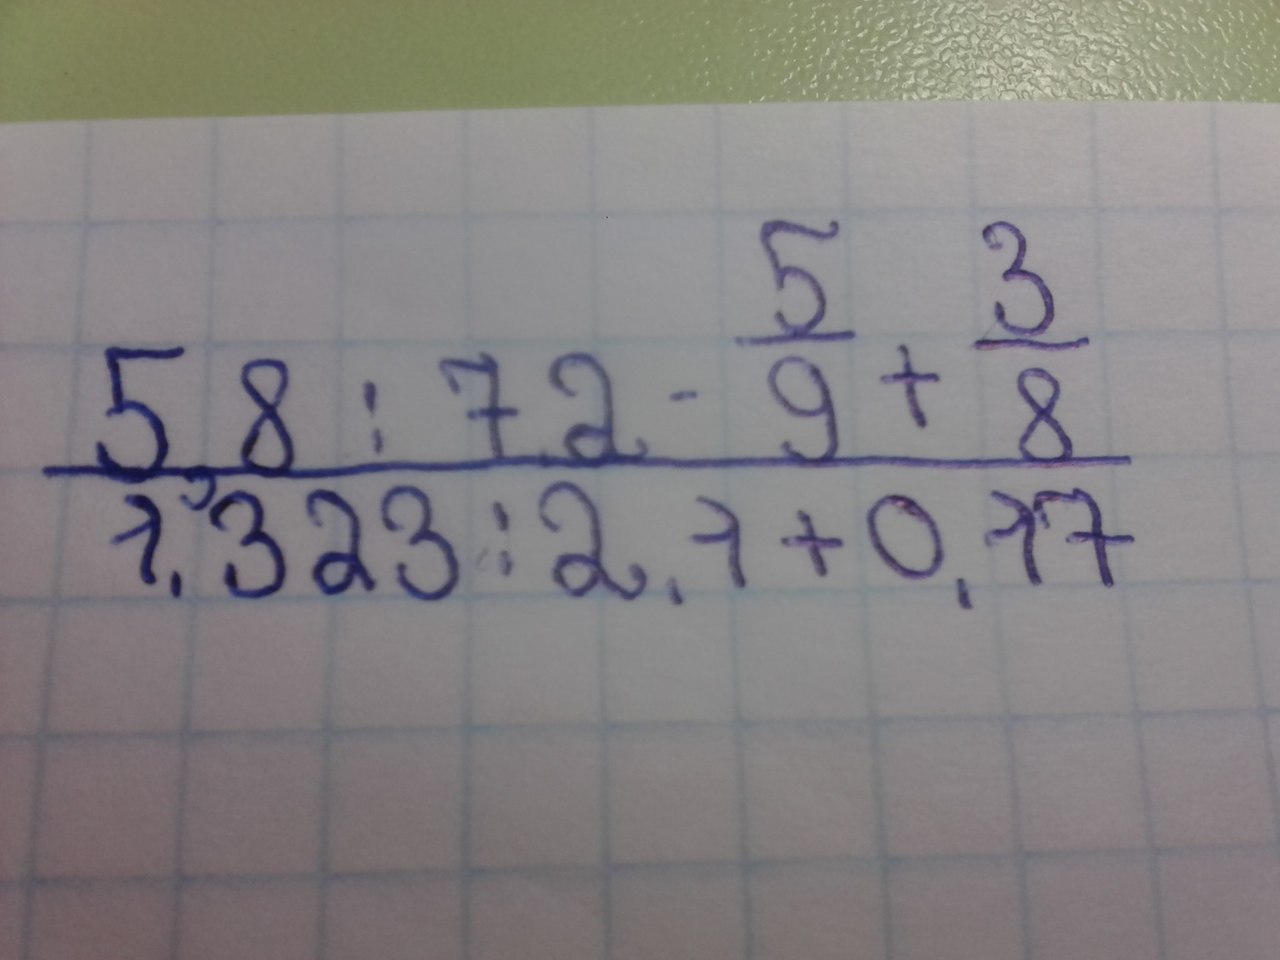 5,8 : 7,2 - 5/9 + 3/8
1,323 : 2,1 + 0,17